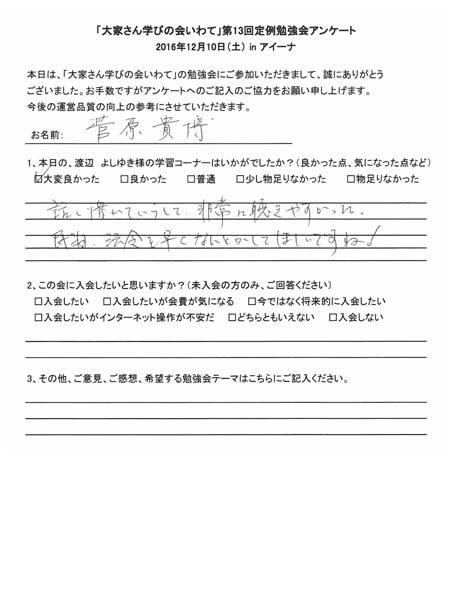 「大家さん学びの会いわて」第13回定例勉強会アンケート
2016年12月10日（土） in アイーナ
本日は、「大家さん学びの会いわて」の勉強会にご参加いただきまして、誠にありがとう
ございました。お手数ですがアンケートへのご記入のご協力をお願い申し上げます。
今後の運営品質の向上の参考にさせていただきます。
お名前: 菅原貴博
1、本日の、渡辺 よしゆき様の学習コーナーはいかがでしたか？（良かった点、気になった点など）
☑大変良かった □良かった □普通 □少し物足りなかった □物足りなかった
話し慣れていらして、非常に聴きやすかった。
法令を早くなんとかしてほしいですね！
2、この会に入会したいと思いますか？（未入会の方のみ、ご回答ください）
□入会したい □入会したいが会費が気になる □今ではなく将来的に入会したい
□入会したいがインターネット操作が不安だ □どちらともいえない □入会しない
3、その他、ご意見、ご感想、希望する勉強会テーマはこちらにご記入ください。